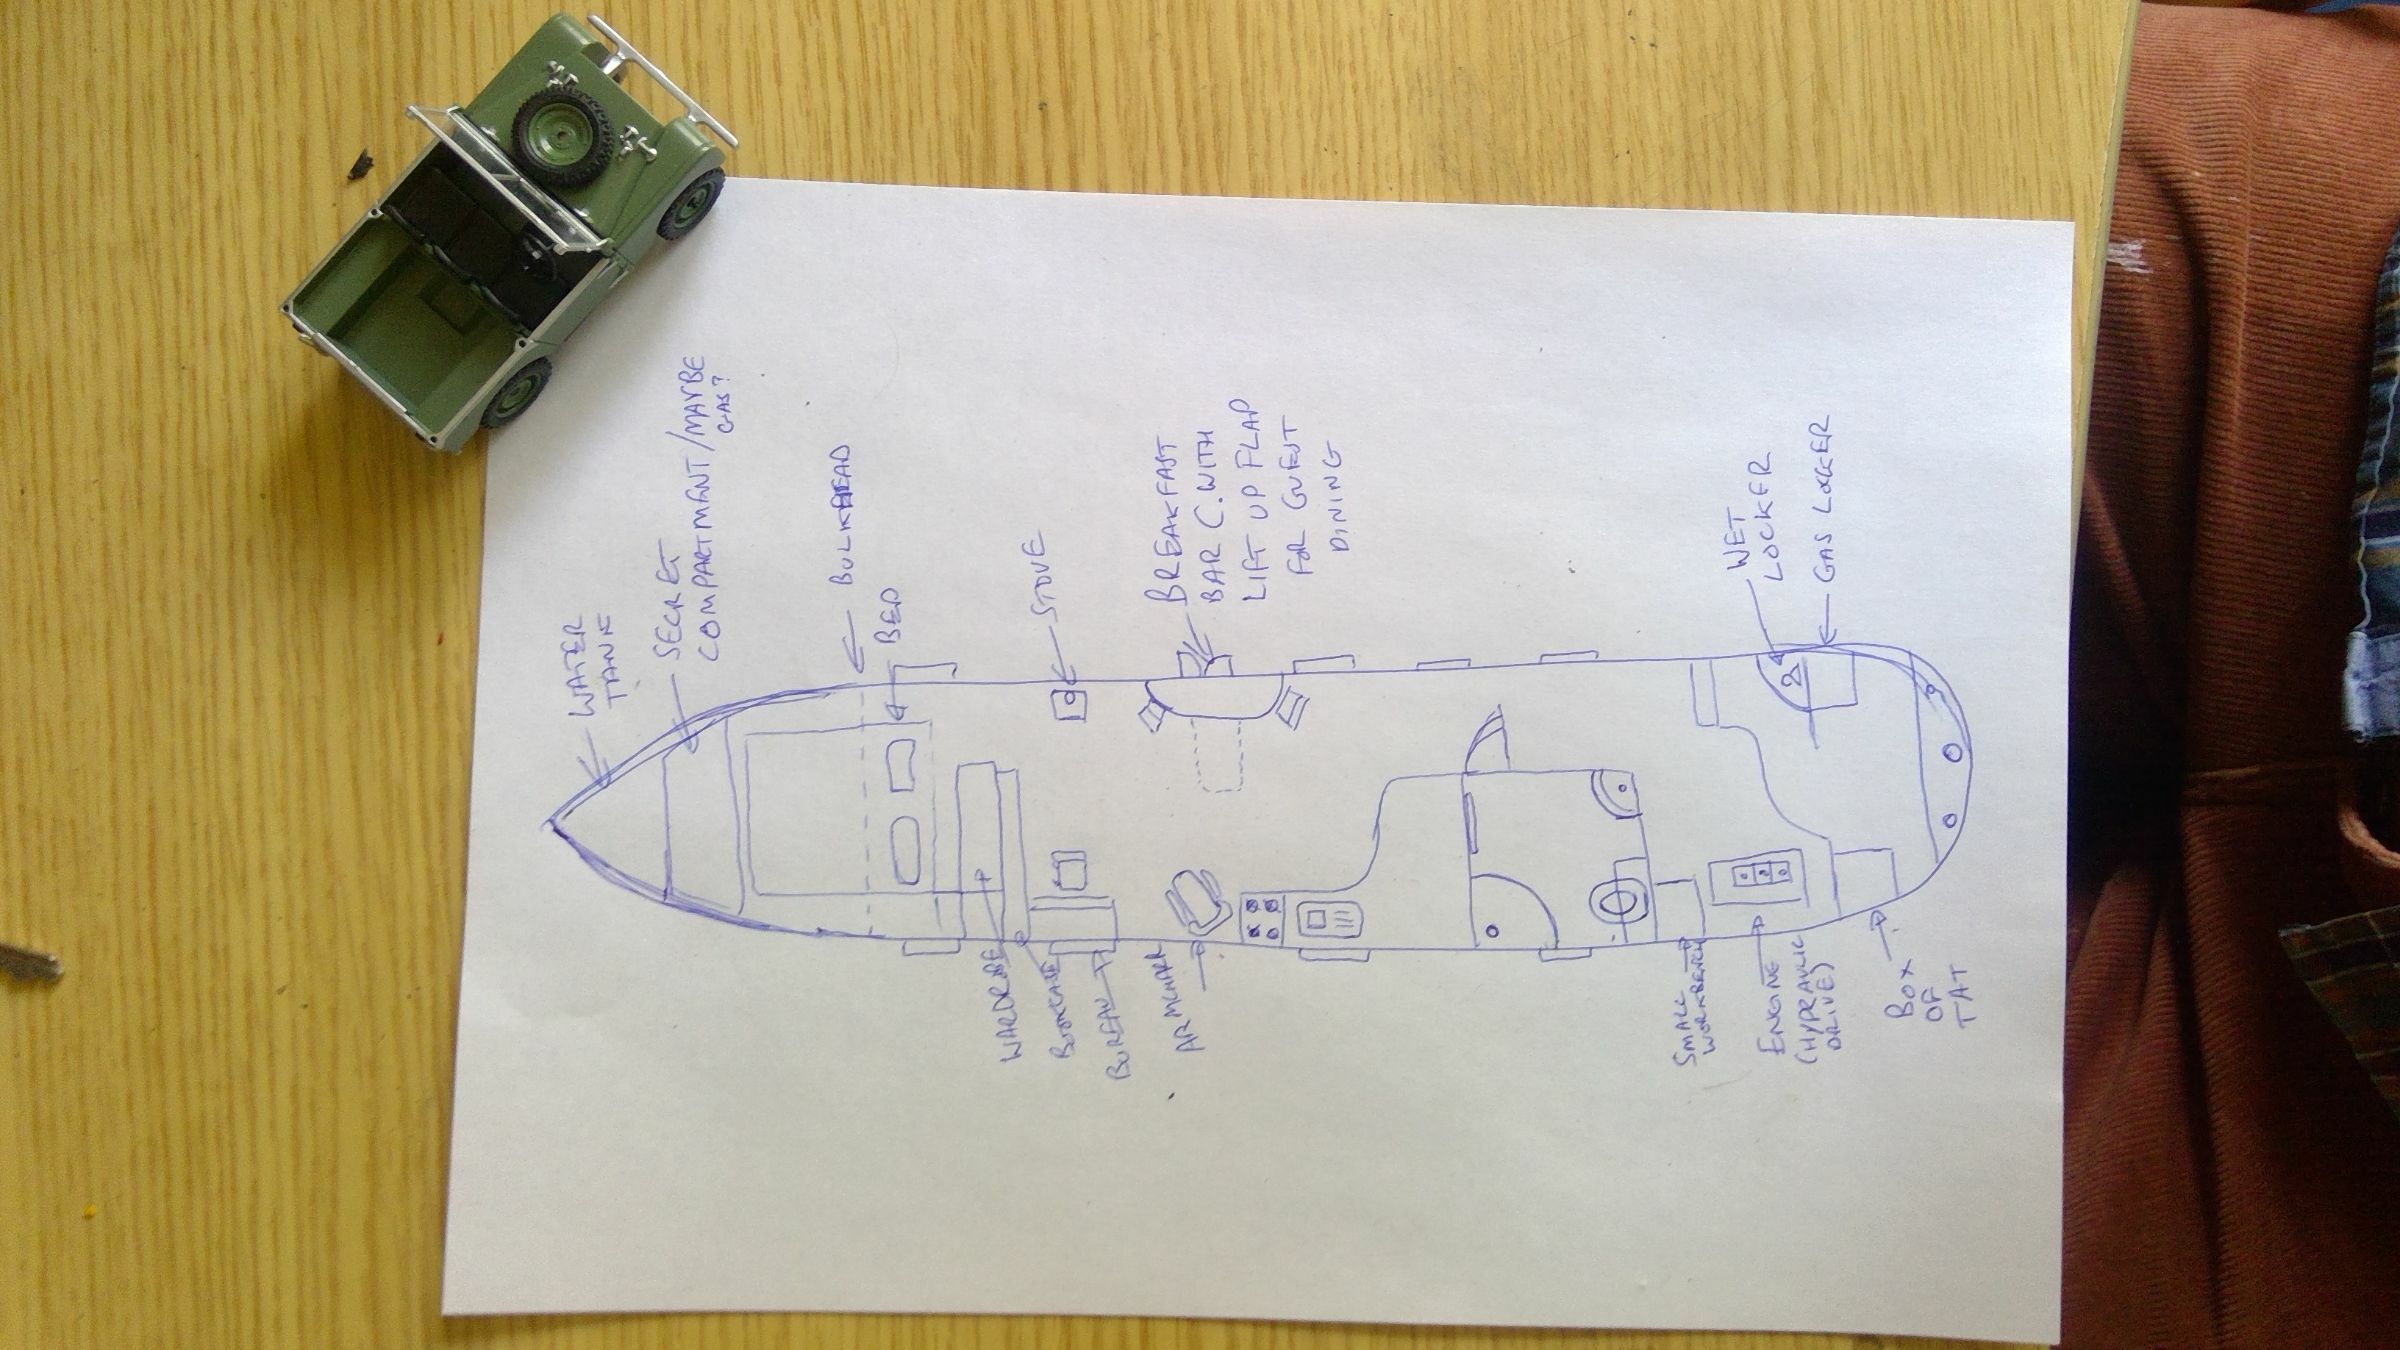 WATER
TANK
SECRET
COMPARTMENT/MAYBE
GAS?
BULKHEAD
BED
STOVE
BREAKFAST
BAR C.WITH
LIFT UP FLAP
FOR GUEST
DINING
WET
LOCKER
GAS LOCKER
2
WARDROBE
BOOKCASE
BUREAU
ARMCHAIR
SMALL
WORKBENCH
ENGINE
(HYDRAULIC
DRIVE)
BOX
OF
TAT